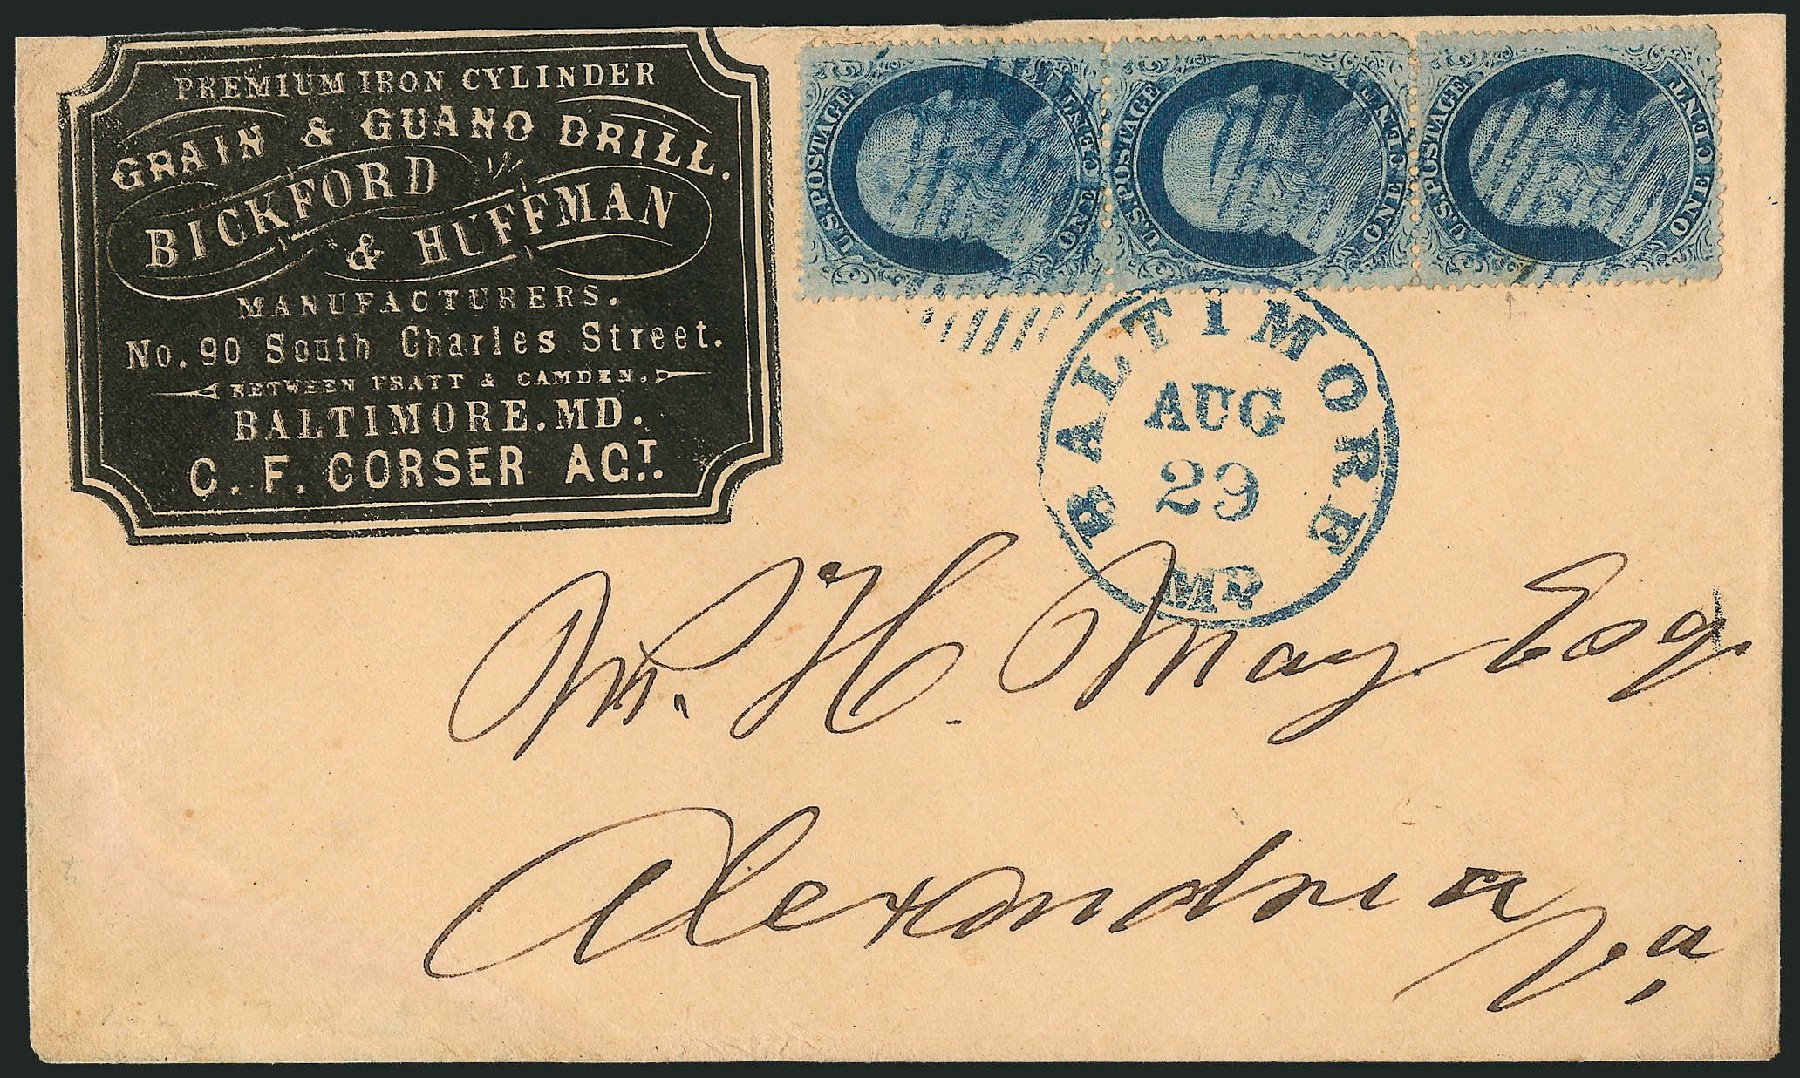 PREMIUM IRON CYLINDER
GRAIN & GUANO DRILL.
BICKFORD
& HUFFMAN
MANUFACTURERS.
No. 90 South Charles Street.
BETWEEN PRATT & CAMDEN.
BALTIMORE. MD.
C. F. CORSER AGT.
U.S. POSTAGE
ONE CENT
U.S. POSTAGE
ONE CENT
U.S. POSTAGE
ONE CENT
BALTIMORE
AUG
29
MD
Wm. H. May Esq.
Alexandria
Va